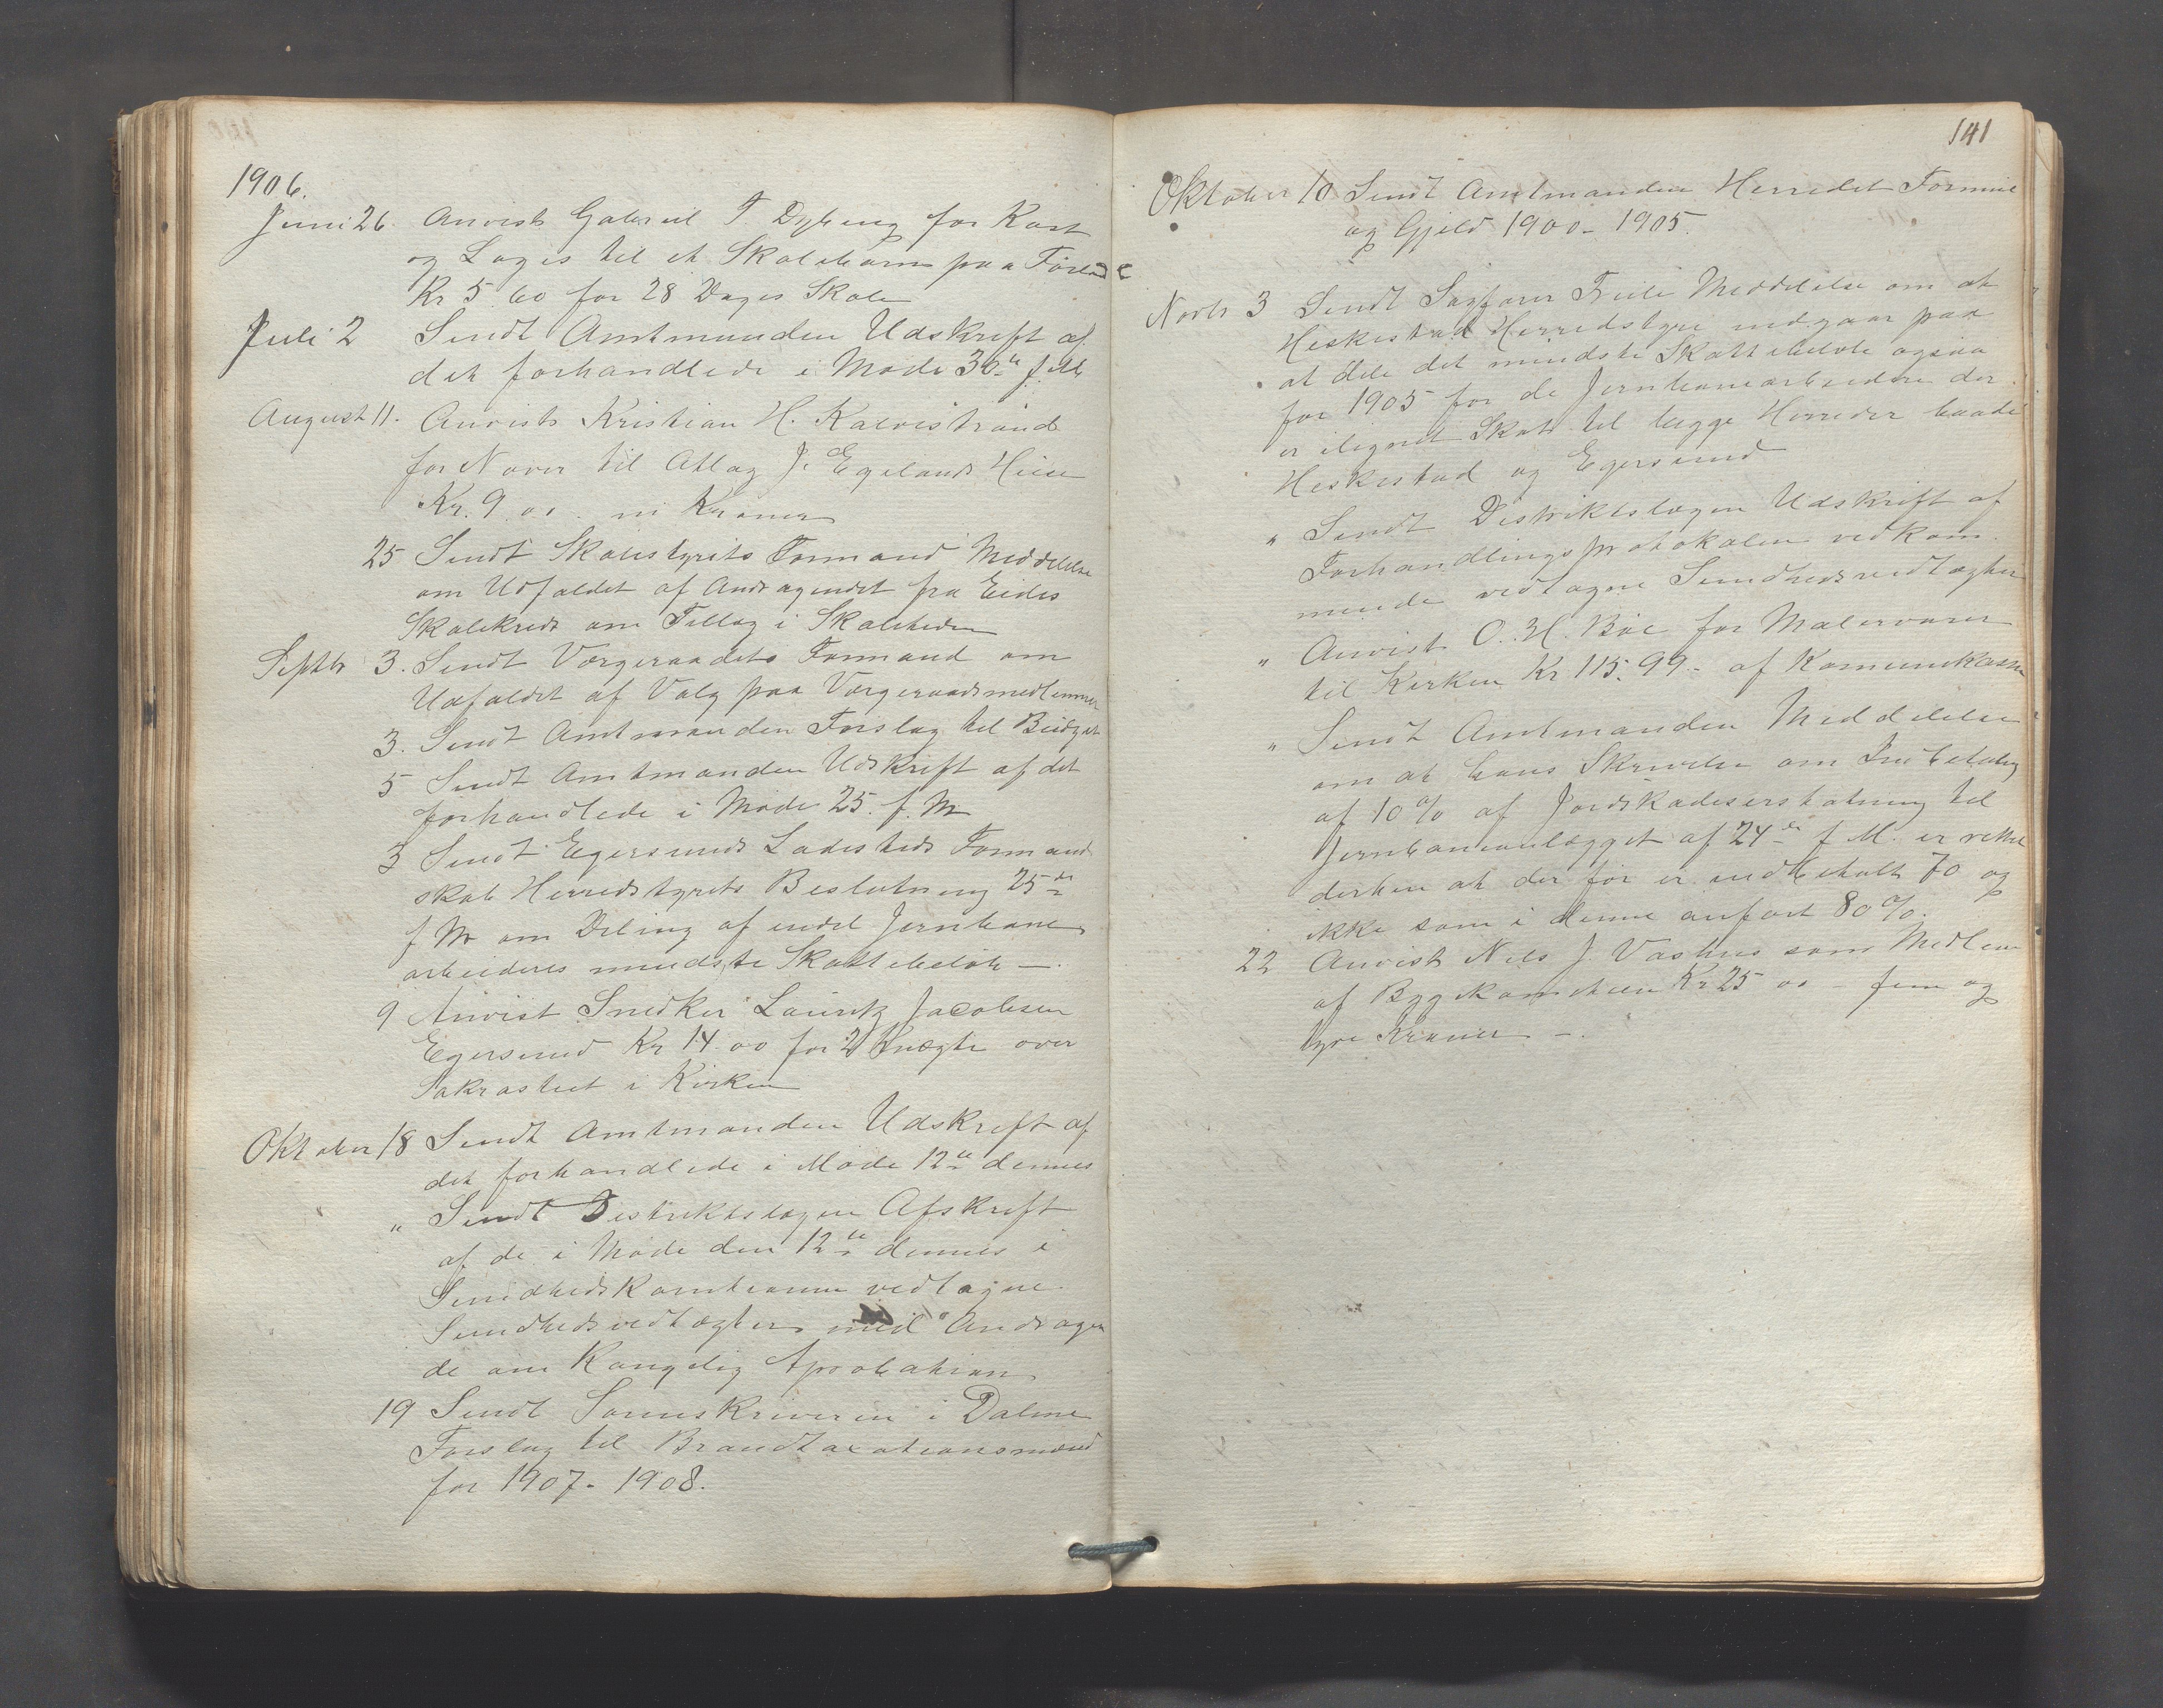 1906.
Juni 26. Anvist Gabriel T Dybing for Kost
og Logis til et Skolebarn paa
Kr 5.60 for 28 Dages Skole
Juli 2 Sendt Amtmanden Udskrift af
det forhandlede i Møde 30te f. M
August 11. Anvist Kristian H. Kalvistrand
for Naver til Atlag J. Egelands Hiee
Kr. 9.00. ni Kroner
25 Sendt Skolestyrets Formand Meddelelse
om Udfaldet af Andragendet fra Eides
Skolekreds om Tillæg i Skoletiden
Septbr 3. Sendt Værgeraadets Formand om
Udfaldet af Valg paa Værgeraadsmedlemmer
3. Sendt Amtmanden Forslag til Budget
5 Sendt Amtmanden Udskrift af det
forhandlede i Møde 25. f. M
3 Sendt Egersunds Ladesteds Formand
skab Herredstyrets Beslutning 25de
f M om Deling af endel Jernbane
arbeideres mindste Skattebeløb —.
9 Anvist Snedker Lauritz Jacobsen
Egersund Kr 14.00 for 2 Knægte over
Sakrastiet i Kirken
Oktober 18 Sendt Amtmanden Udskrift af
det forhandlede i Møde 12te dennes
" Sendt Distriktslægen Afskrift
af de i Møde den 12te dennes i
Sundhedskomiteen vedtagne
Sundhedsvedtægter med Andragen
de om Kongelig Aprobation
19 Sendt Sorenskriveren i Dalene
Forslag til Brandtaxationsmænd
for 1907-1908.
141
Oktober 10 Sendt Amtmanden Herredet Formue
og Gjeld 1900-1905.
Novbr 3 Sendt Sagfører Feile Meddelelse om at
Heskestad Herredstyre indgaar paa
at dele det mindste Skattebeløb ogsaa
for 1905 for de Jernbanearbeidere der
er ilignet Skat til begge Herreder baade
Heskestad og Egersund
" Sendt Distriktslægen Udskrift af
Forhandlingsprotokolen vedkom
mende vedtagne Sundhedsvedtægter
" Anvist O. H. Bøe for Malervarer
til Kirken Kr 115.99 - af Komunekassen
" Sendt Amtmanden Meddelelse
om at hans Skrivelse om Indbetaling
af 10% af Jordskadeserstatning til
Jernbaneanlægget af 24de f M. er rettet
derhen at der før er indbetalt 70 og
ikke som i denne anført 80%.
22 Anvist Nils J. Vashus som Medlem
af Byggekomiteen Kr 25.00 - fem og
tyve Kroner —.